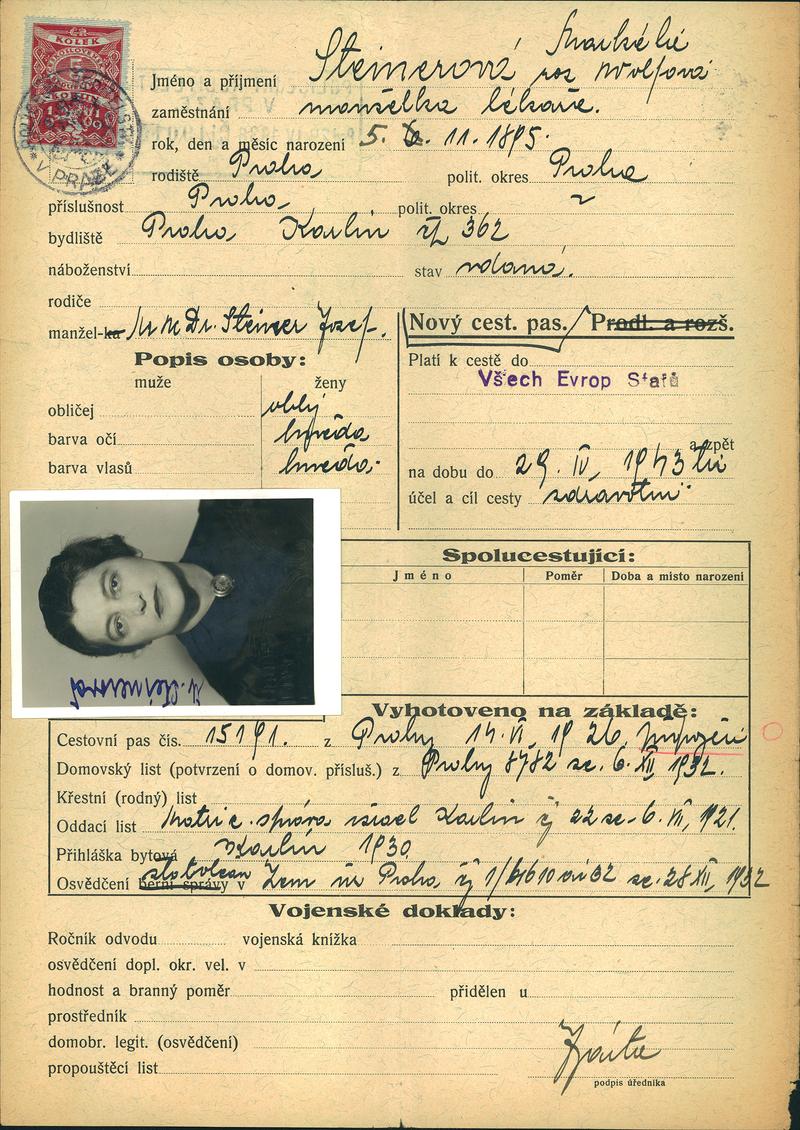 KOLEK
5
V PRAZE
Markéta
Jméno a příjmení Steinerová roz Wolfová
zaměstnání manželka lékaře.
rok, den a měsíc narození 5. 11. 1895.
rodiště Praha polit. okres Praha
příslušnost Praha polit. okres
bydliště Praha Karlín čp 362
náboženství stav vdaná.
rodiče
manžel-ka MUDr. Steiner Josef.
Nový cest. pas. / Prodl. a rozš.
Popis osoby:
muže ženy
obličej oblý
barva očí hnědá
barva vlasů hnědá
Platí k cestě do
Všech Evrop Států
a zpět
na dobu do 29. IV. 1943
účel a cíl cesty zdravotní
M. Steinerová
Spolucestující:
Jméno Poměr Doba a místo narození
Vyhotoveno na základě:
Cestovní pas čís. 15191. z Prahy 14. VI. 1926.
Domovský list (potvrzení o domov. přísluš.) z Prahy 8782 ze 6. XII 1932.
Křestní (rodný) list
Oddací list Matric. správa israel Karlín čj 22 ze 6. VII, 1921.
Přihláška bytová Karlín 1930
Osvědčení berní správy v stát. občan Zem úř Praha čj ze 28 XII, 1932
Vojenské doklady:
Ročník odvodu vojenská knížka
osvědčení dopl. okr. vel. v
hodnost a branný poměr přidělen u
prostředník
domobr. legit. (osvědčení)
propouštěcí list
podpis úředníka